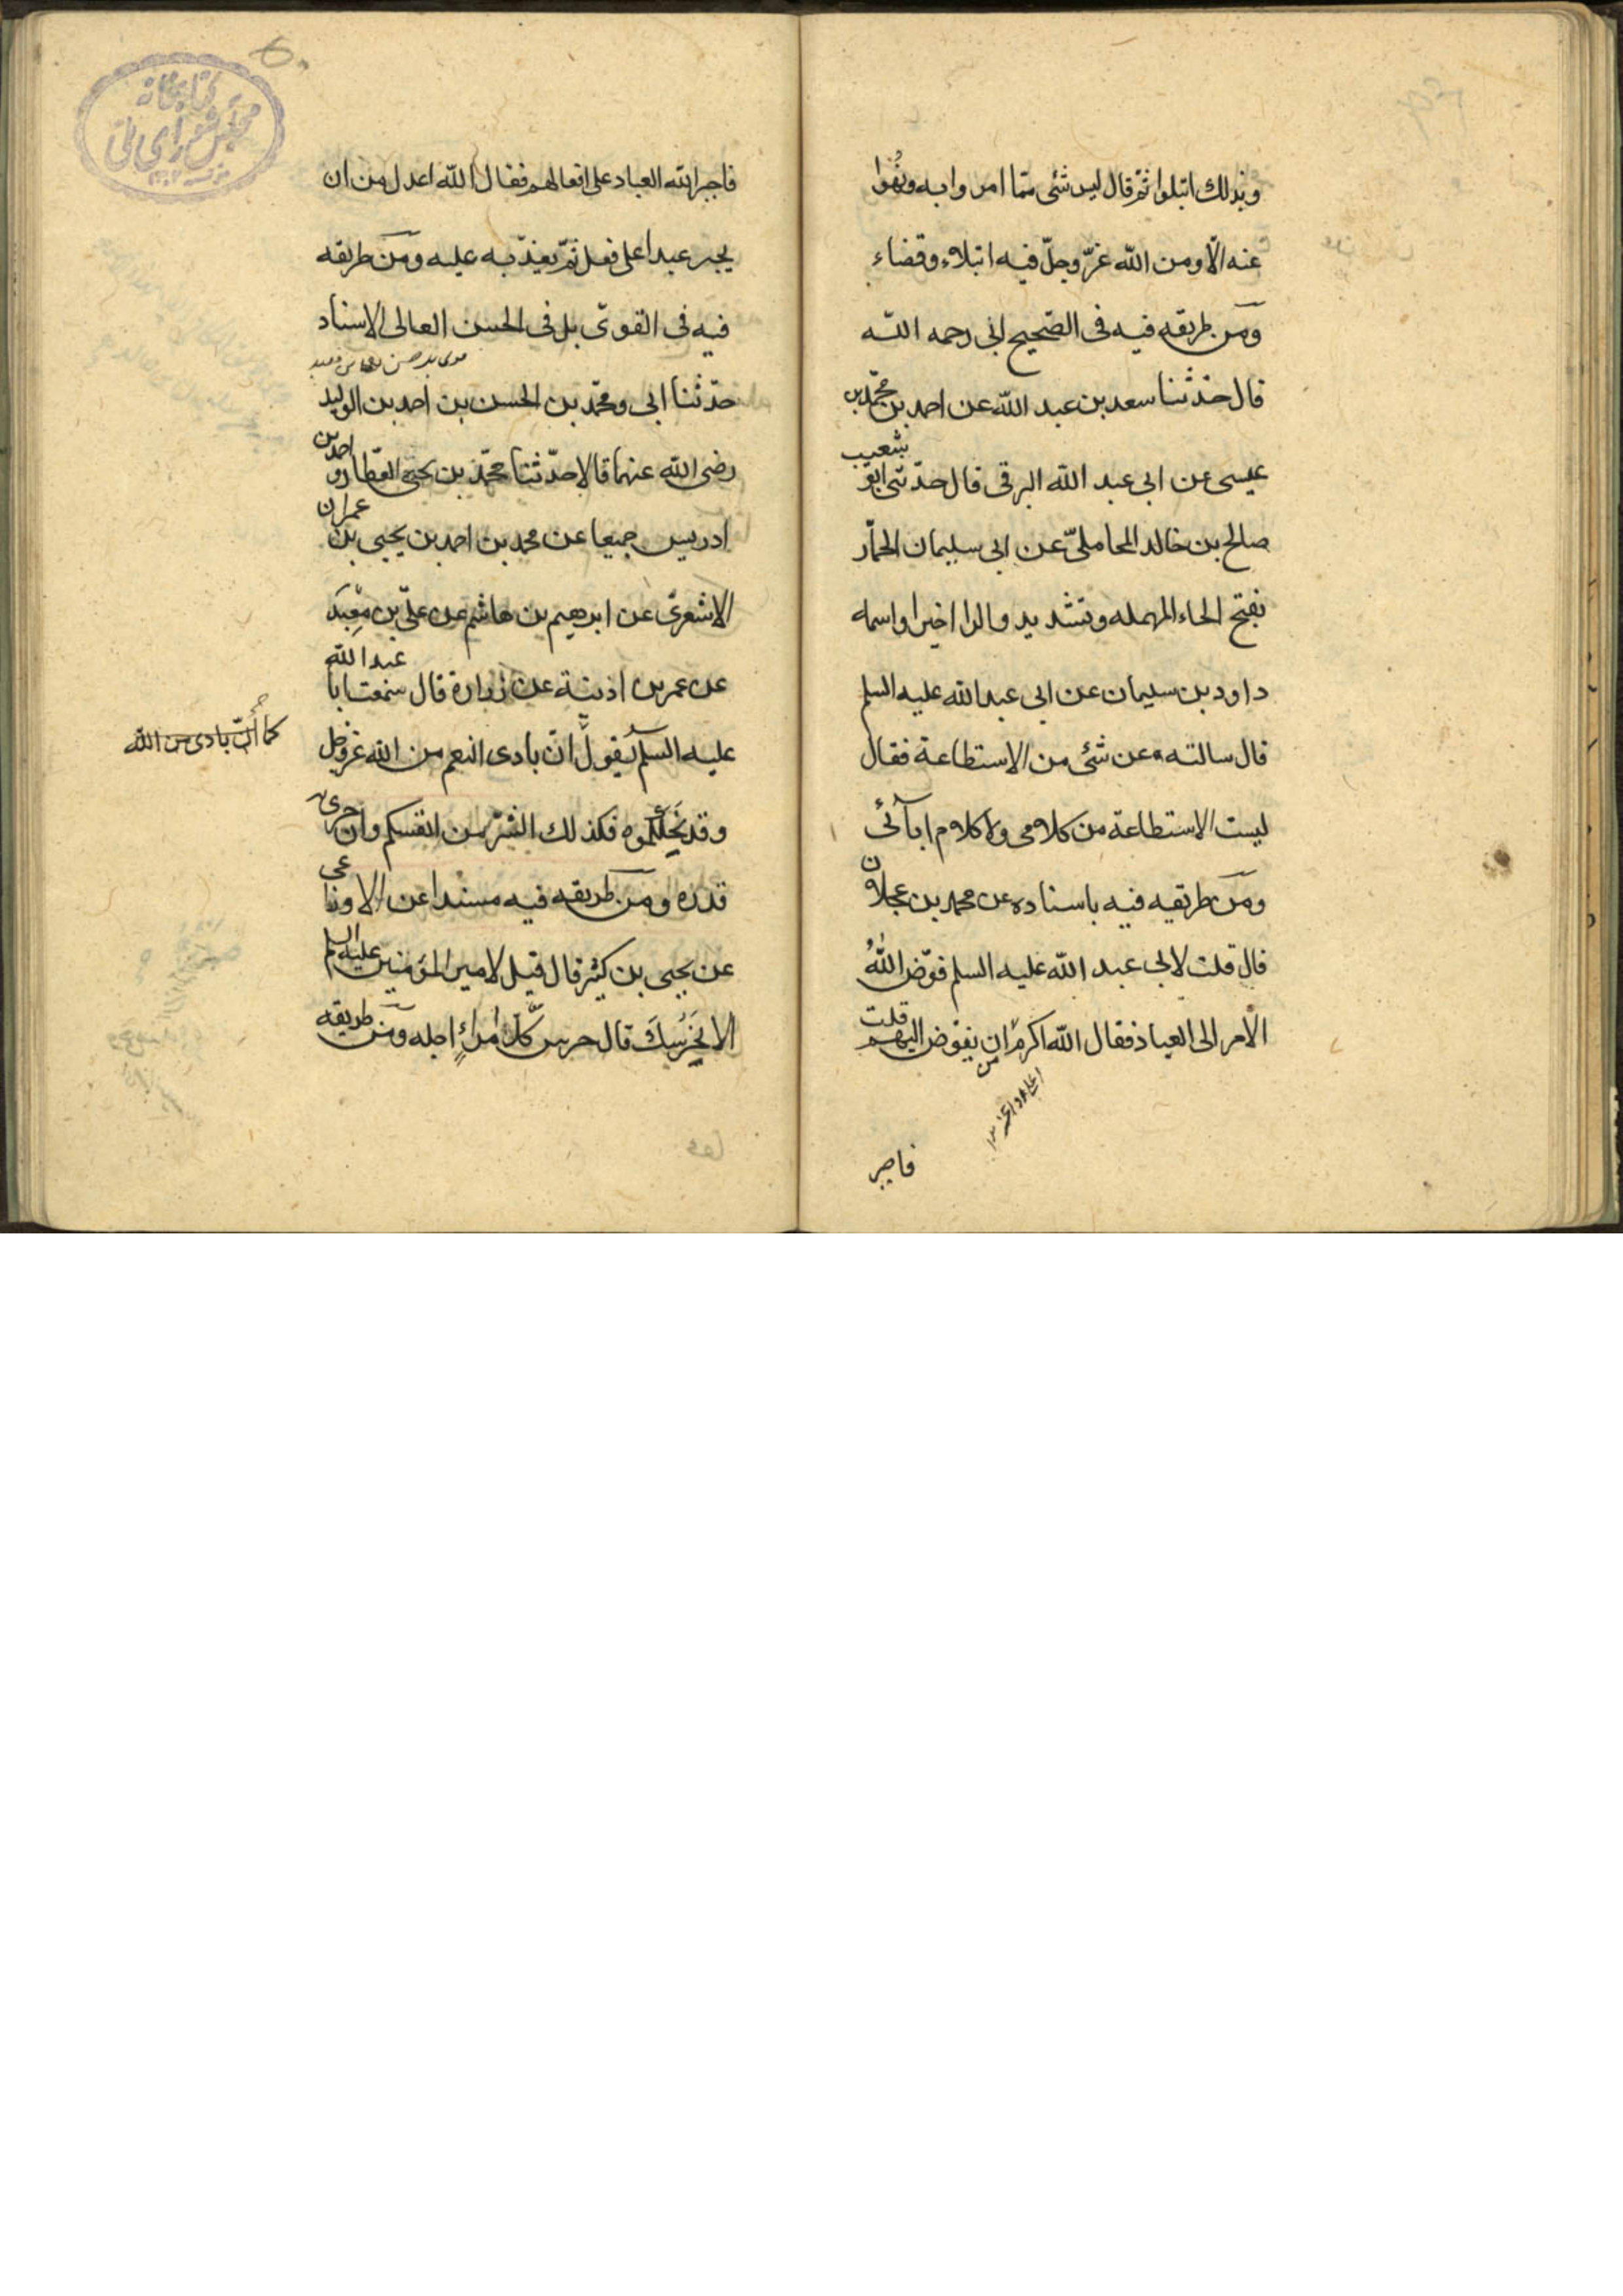 وبذلك ابتلوا ثم قال ليس شئ مما امروا به ونهوا
عنه الّا ومن الله عزّ وجلّ فيه ابتلاء وقضاء
ومن طريقه فيه فى الصّحيح ابى رحمه الله
قال حدّثنا سعد بن عبد الله عن احمد بن محمّد بن
عيسى عن ابى عبد الله البرقى قال حدّثنى ابو شعيب
صالح بن خالد المحاملىّ عن ابى سليمان الحمّار
بفتح الحاء المهمله وتشديد والرا اخيرا واسمه
داود بن سليمان عن ابى عبد الله عليه السلم
قال سالته عن شئ من الاستطاعة فقال
ليست الاستطاعة من كلامى ولا كلام ابآئى
ومن طريقه فيه باسناده عن محمد بن عجلان
قال قلت لابى عبد الله عليه السلم فوّض اللهُ
الأمر الى العباد فقال الله اكرم من ان يفوّض اليهم قلت
فاجبر
كتابخانه
مجلس شوراى ملّى
فاجبر الله العباد على افعالهم فقال الله اعدل من ان
يجبر عبدا على فعل ثمّ يعذّبه عليه ومن طريقه
فيه فى القوىّ بل فى الحسن العالى الاسناد
حدّثنا ابى ومحمّد بن الحسن بن احمد بن الوليد
رضى الله عنهما قالا حدّثنا محمّد بن يحيى العطّار واحمد بن
ادريس جميعا عن محمد بن احمد بن يحيى بن عمران
الاشعرىّ عن ابرهيم بن هاشم عن علىّ بن معبد
عن عمر بن اذينة عن زرارة قال سمعت ابا عبد الله
عليه السلم يقول انّ بادى النعم من الله عزوجل
كما انّ بادى من الله
وقد نحلكموه فكذلك الشرّ من انفسكم وان جرى به
قدره ومن طريقه فيه مسندا عن الاوزاعى
عن يحيى بن كثير قال قيل لامير المؤمنين عليه السلم
الا نحرسك قال حرس كلّ امرئٍ اجله ومن طريقه